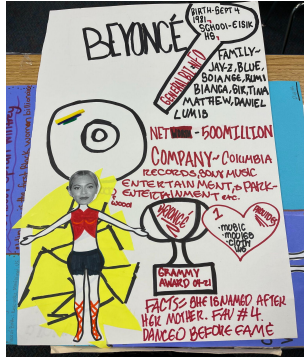 BEYONCÉ
BIRTH-SEPT 4
1981
SCHOOL-ELSIK
HS
FAMILY-
JAY-Z, BLUE,
RUMI
BIANCA, SIR, TINA
MATTHEW, DANIEL
NET - 500 MILLION
COMPANY- COLUMBIA
RECORDS, SONY MUSIC
ENTERTAINMENT, PARK-
ENTERTAINMENT etc.
WOOO!
BEYONCÉ
GRAMMY
AWARD 01-21
1
FAVORITES
-music
-movies
FACTS- SHE IS NAMED AFTER
HER MOTHER. FAV # 4.
DANCED BEFORE FAME